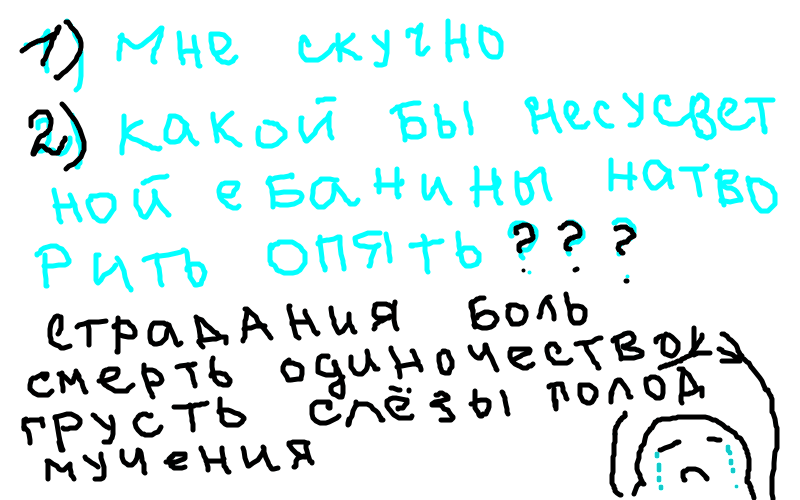 1) мне скучно
2) какой бы несусвет
ной ебанины натво
рить опять???
страдания боль
смерть одиночество
грусть слёзы полод
мучения